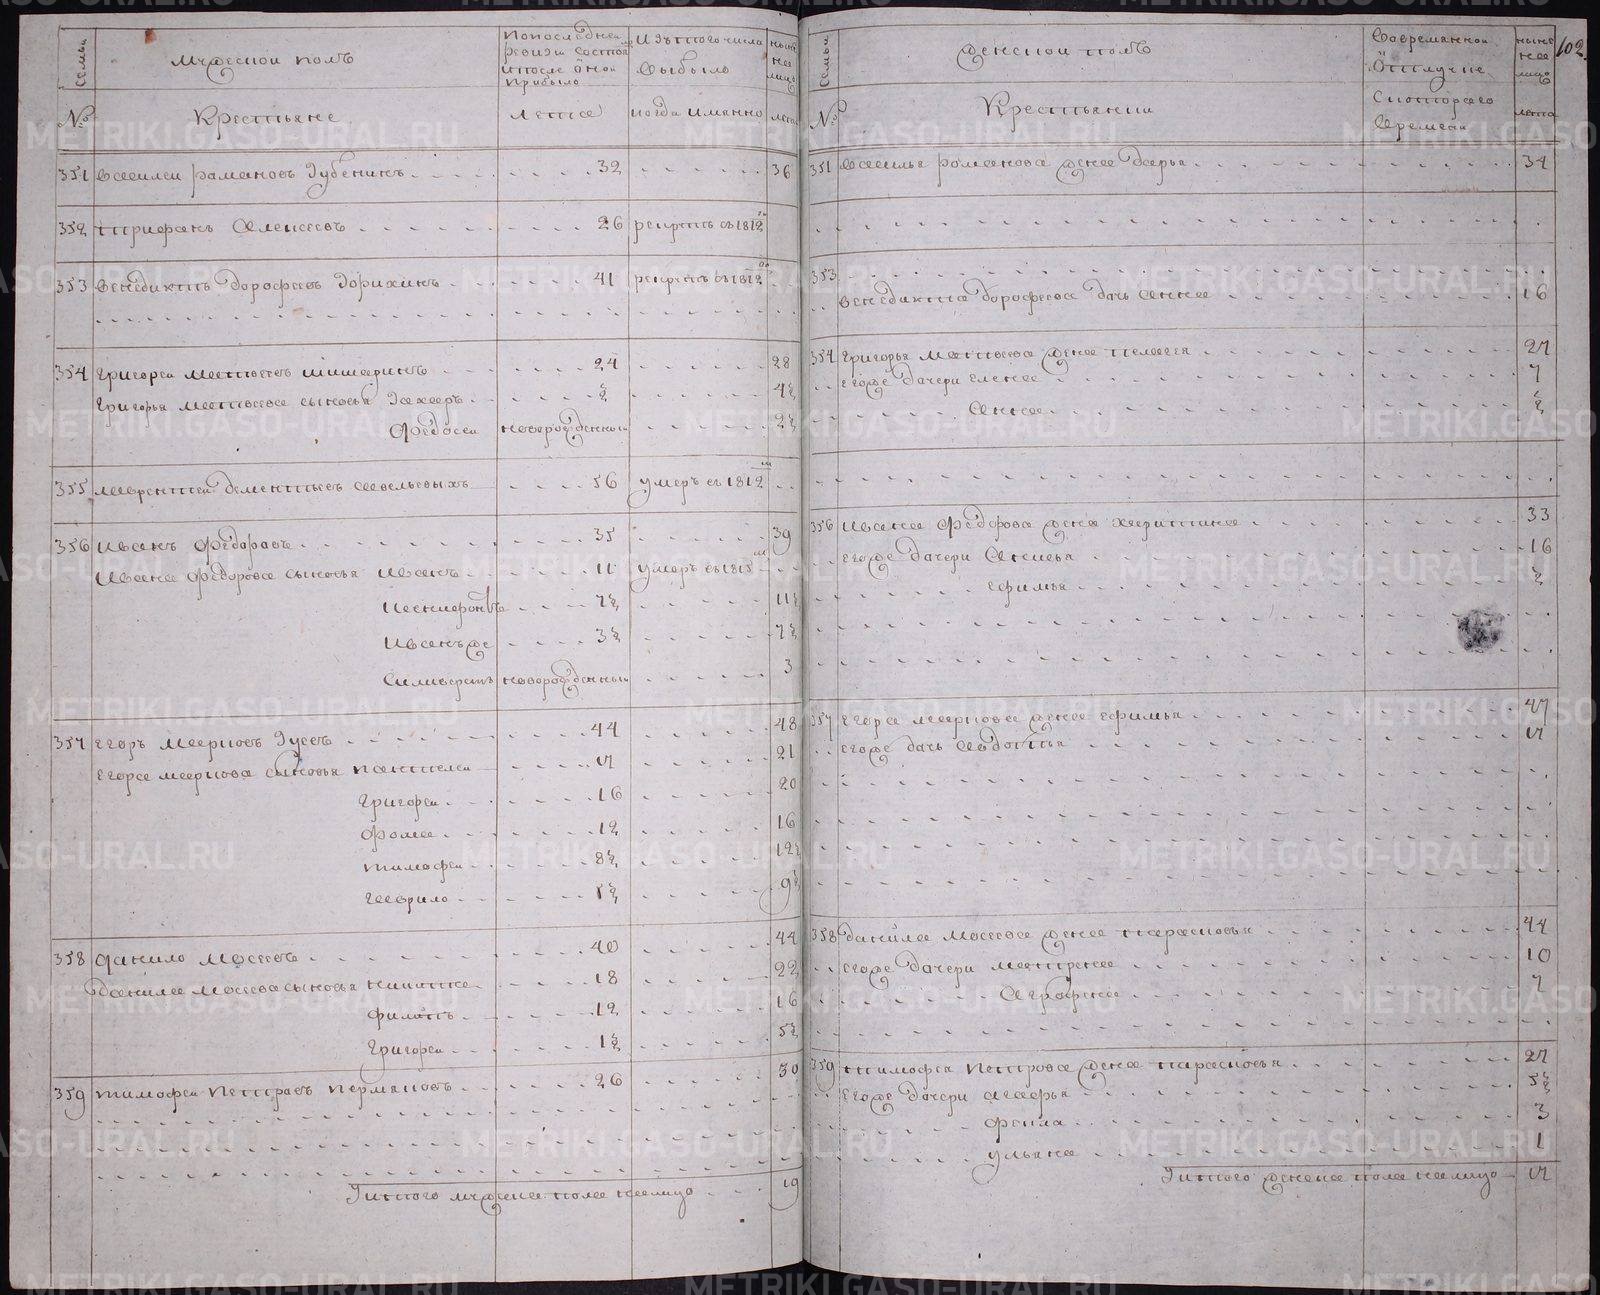 Семьи
Мужескои полъ
По последнеи ревизи состоя и после оной прибыло
Изътого числа выбыло
ныне на лицо
№
Крестьяне
лета
когда имянно
лета
351 Василеи рамановъ Зубенинъ 32 36
352 трифанъ Алексеевъ 26 рекрутъ въ 1812м
353 Венедиктъ дорофеевъ 41 рекрутъ въ 1812м
354 Григореи Матвеевъ Шишаринъ 24 28
Григорья Матвеева сыновья Захаръ ½ 4½
Федосеи новорожденныи 2½
355 Лаврентеи дементьевъ савельевыхъ 56 умеръ въ 1812м
356 Иванъ Федоравъ 35 39
Ивана Федорова сыновья Иванъ 11 умеръ въ 1815м
7½ 11½
Иванъже 3½ 7½
Силиверстъ новорожденныи 3
357 Егоръ Марковъ Гусевъ 44 48
Егора Маркова сыновья Пантелеи 17 21
Григореи 16 20
Фома 12 16
тимофеи 8½ 12½
Гаврило 5½ 9½
358 Данило Мосеевъ 40 44
Данила Мосеева сыновья Никита 18 22
Филатъ 12 16
Григореи 1½ 5½
359 тимофеи Петравъ Пермаковъ 26 30
Итого мужеска пола налицо 19
102
Семьи
Женскои полъ
Вовременной Отлучке
ныне на лицо
№
Крестьянки
Скоторого Времени
лета
351 Василья романова жена дарья 34
353
Венедикта дорофеева дочь Анна 16
354 Григорья Матвеева жена Пелагея 27
Егоже дачери Елена 7
Анна ½
356 Ивана Федорова жена харитина 33
Егоже дачери 16
Ефимья ½
357 Егора Маркова жена Ефимья 47
Егоже дачь Авдотья 17
358 Данила Мосеева жена парасковья 44
Егоже дачери Матрена 10
Аграфена 7
359 тимофея Петрова жена парасковья 27
Егоже дачери Агафья 5½
Фекла 3
ульяна 1
Итого женска пола налицо 17